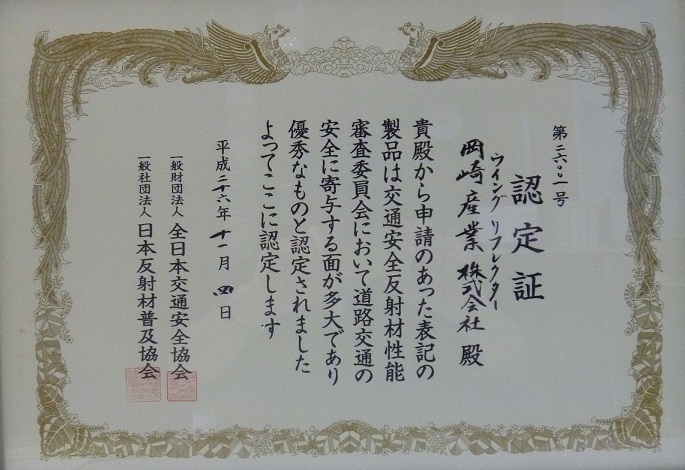 第二六〇〇一号
認定証
ウイングリフレクター
岡崎産業株式会社殿
貴殿から申請のあった表記の
製品は交通安全反射材性能
審査委員会において道路交通の
安全に寄与する面が多大であり
優秀なものと認定されました
よってここに認定します
平成二十六年十一月四日
一般財団法人全日本交通安全協会
一般社団法人日本反射材普及協会